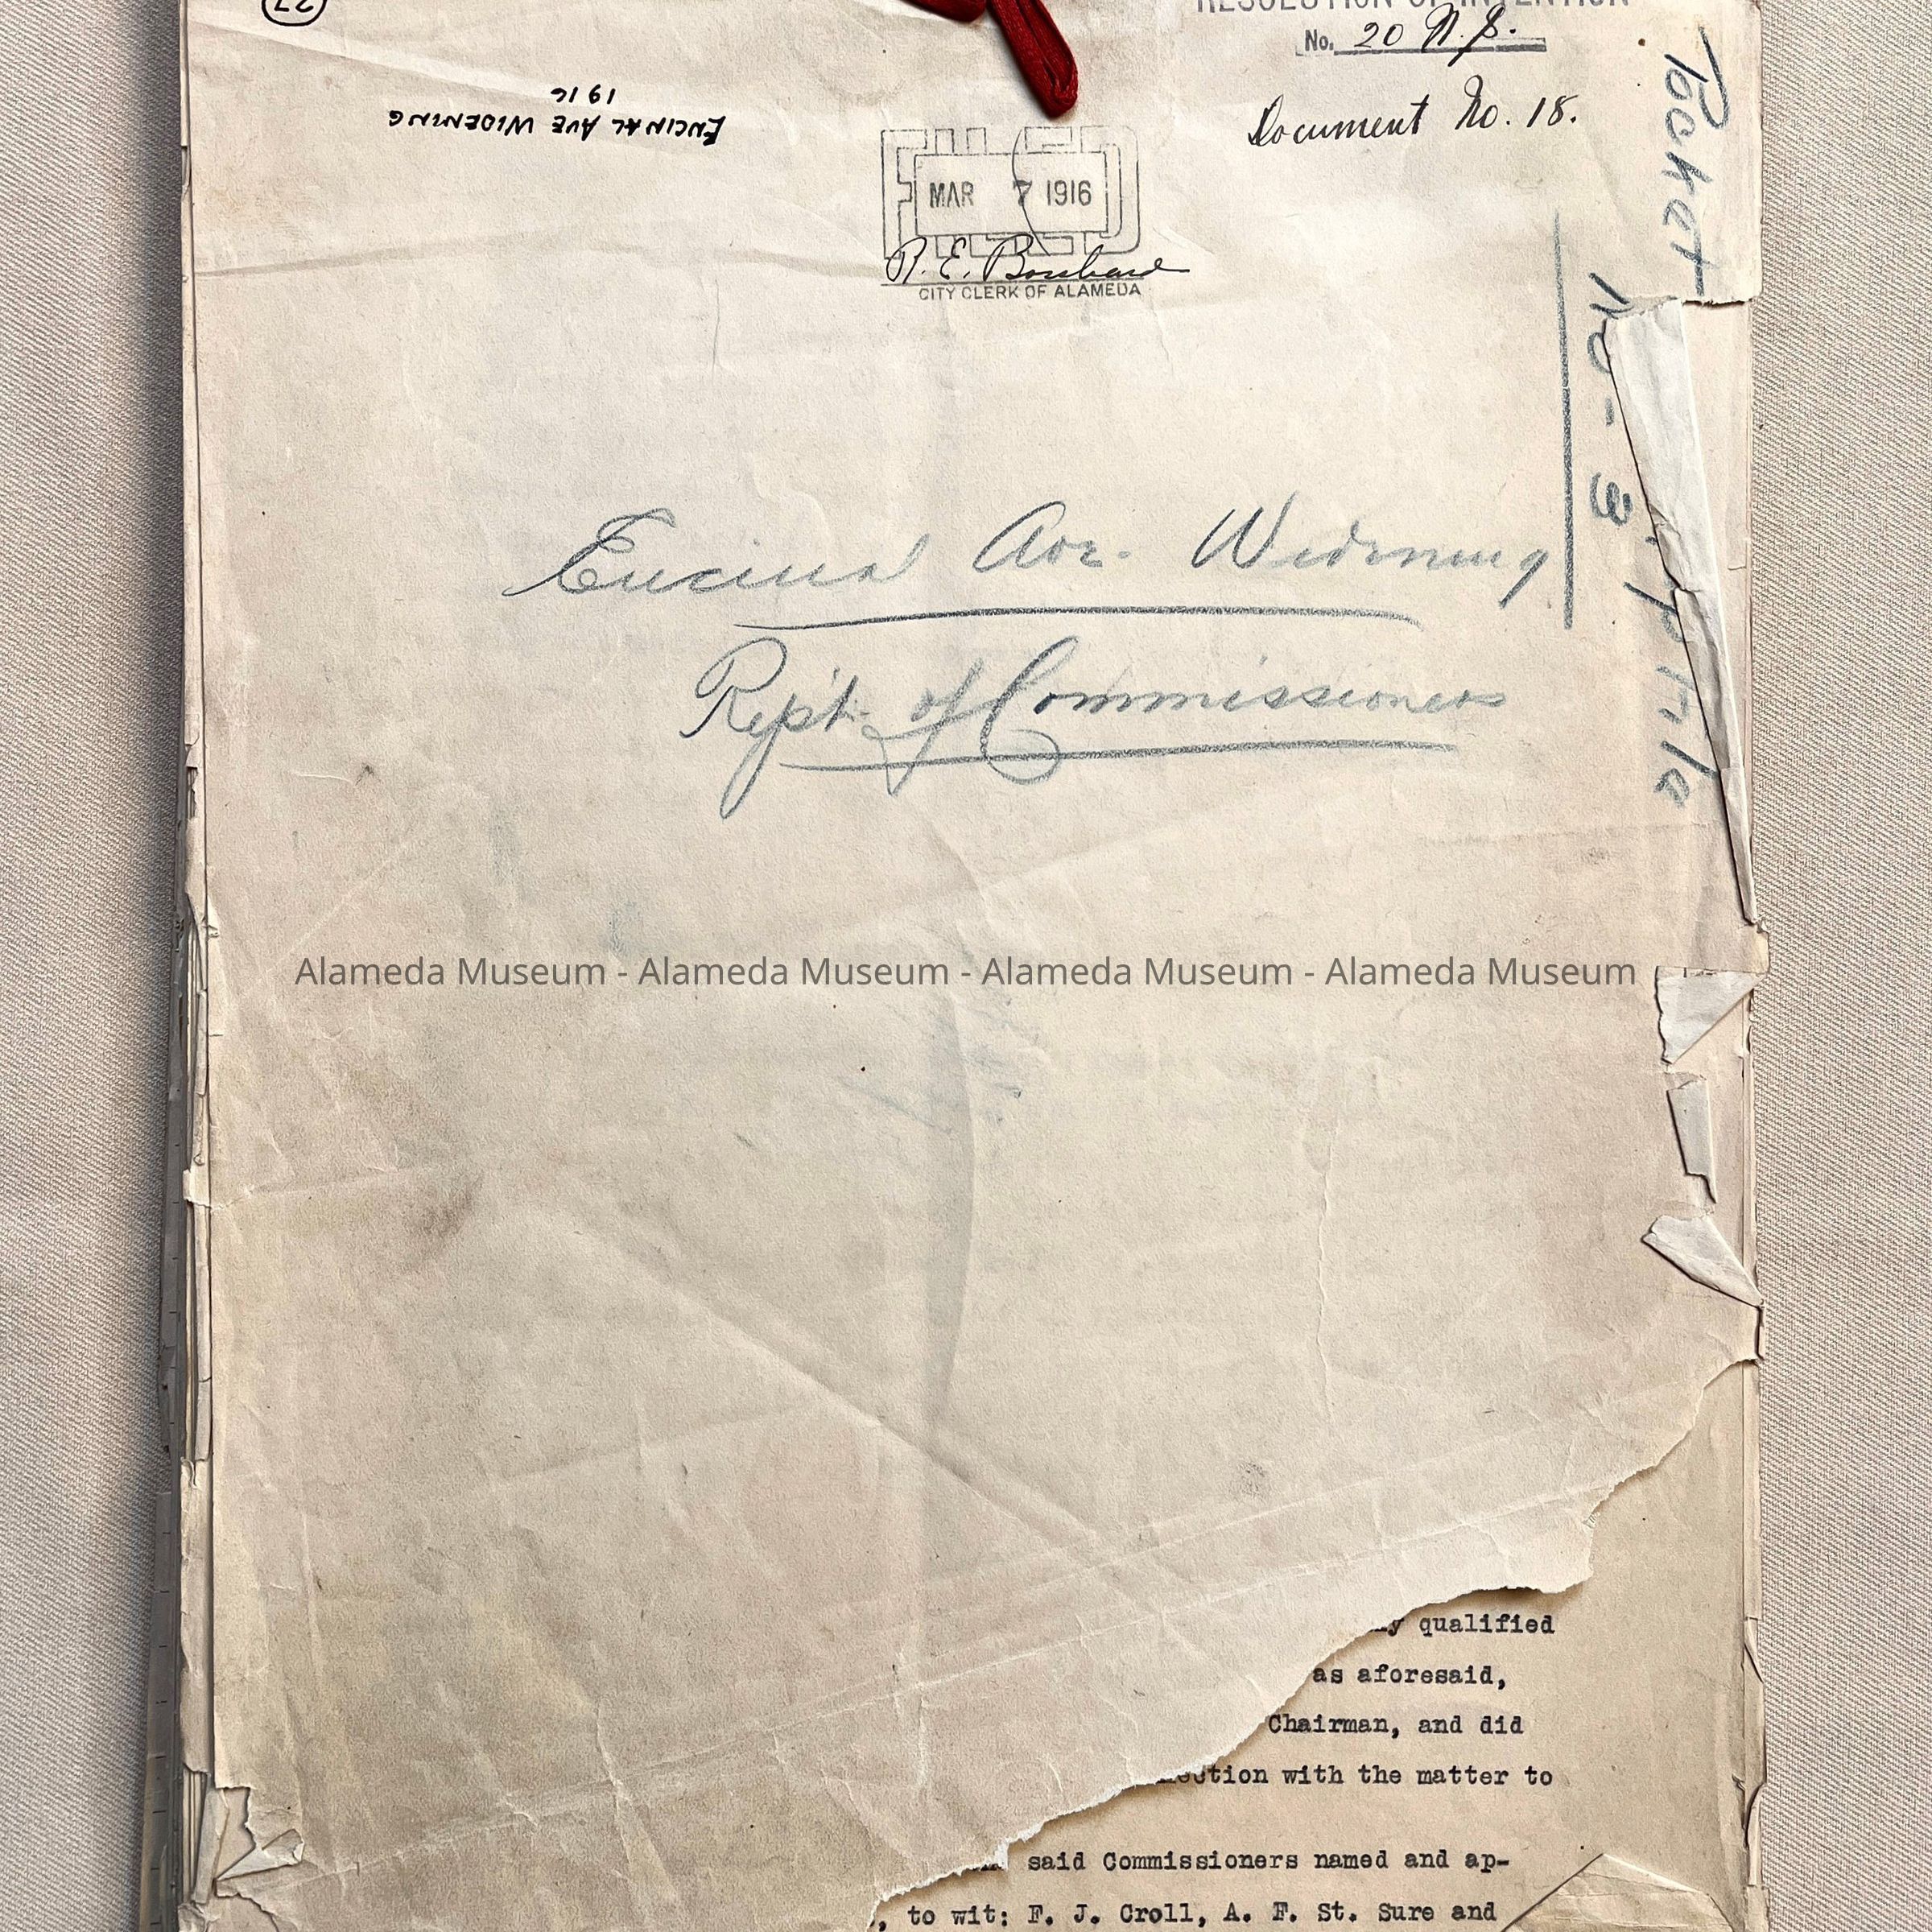 27
RESOLUTION OF INTENTION
No. 20 N.S.
Document No. 18.
ENCINAL AVE WIDENING
1916
MAR 7 1916
CITY CLERK OF ALAMEDA
Pocket
No-3
Encinal Ave. Widening
Rep't. of Commissioners
Alameda Museum - Alameda Museum - Alameda Museum - Alameda Museum
qualified
as aforesaid,
Chairman, and did
with the matter to
said Commissioners named and ap-
, to wit: F. J. Croll, A. F. St. Sure and